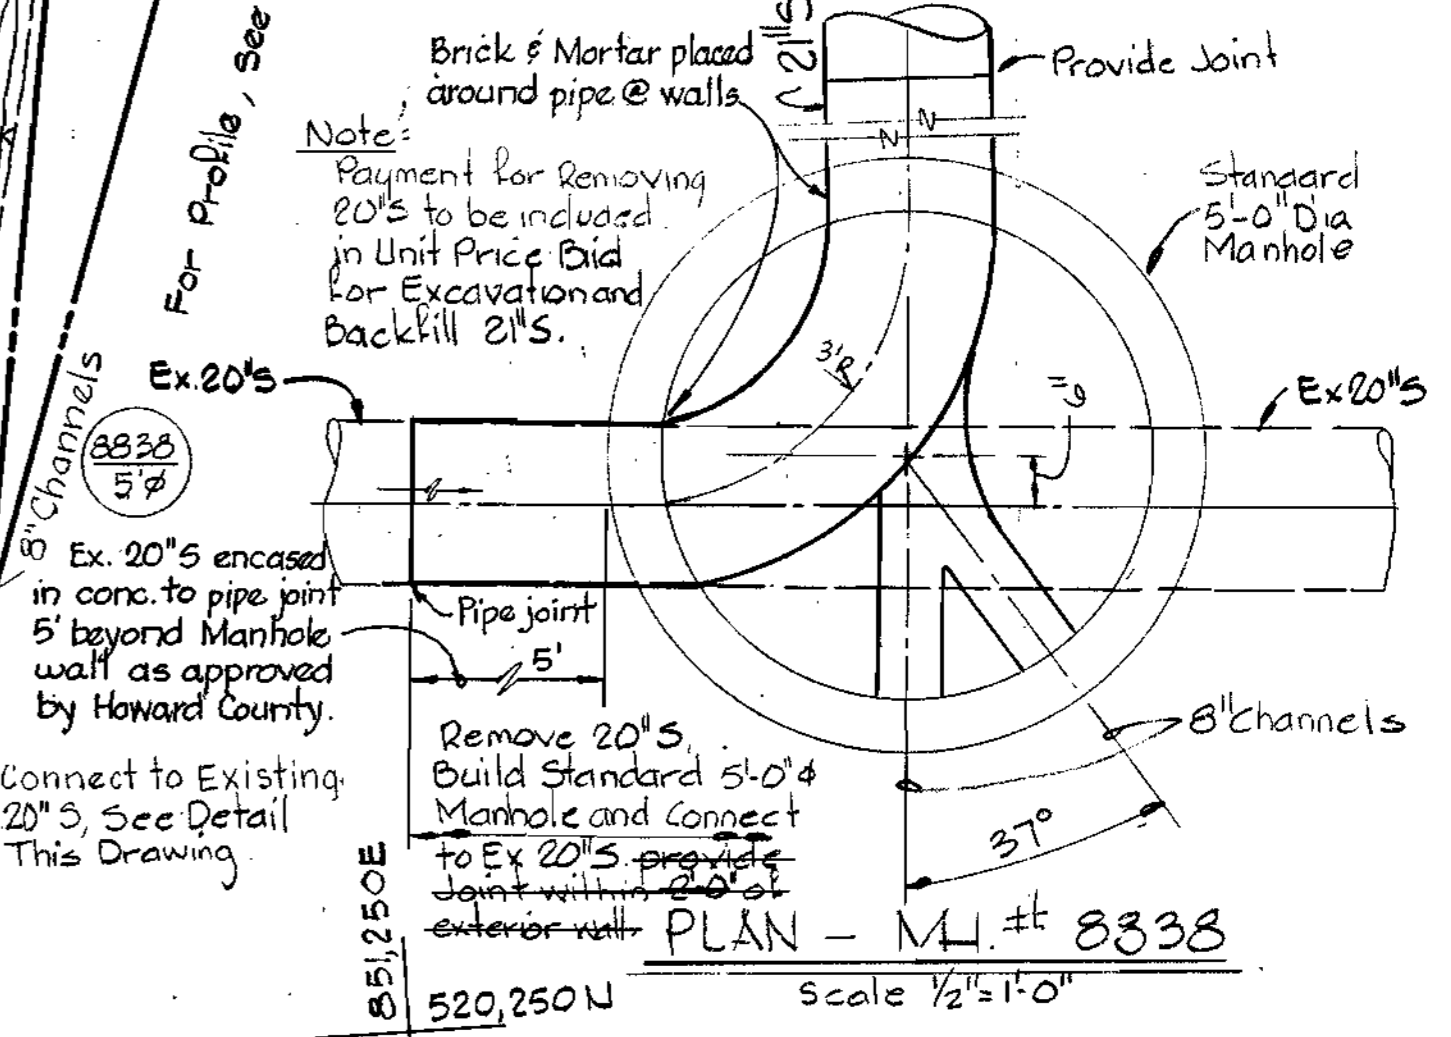 For Profile, See
Brick & Mortar placed
around pipe @ walls
21"S
Provide Joint
Note:
Payment for Removing
20"S to be included
in Unit Price Bid
for Excavation and
Backfill 21"S.
Standard
5'-0" Dia
Manhole
N N
3'R
9"
Ex. 20"S
Ex 20"S
8" Channels
8838
5'φ
Ex. 20"S encased
in conc. to pipe joint
5' beyond Manhole
wall as approved
by Howard County.
Pipe joint
5'
Connect to Existing
20"S, See Detail
This Drawing.
Remove 20"S,
Build Standard 5'-0"φ
Manhole and Connect
to Ex 20"S. provide
Joint within 2'-0" of
exterior wall.
8" Channels
37°
851,250E
520,250N
PLAN - MH. # 8338
Scale 1/2"=1'-0"